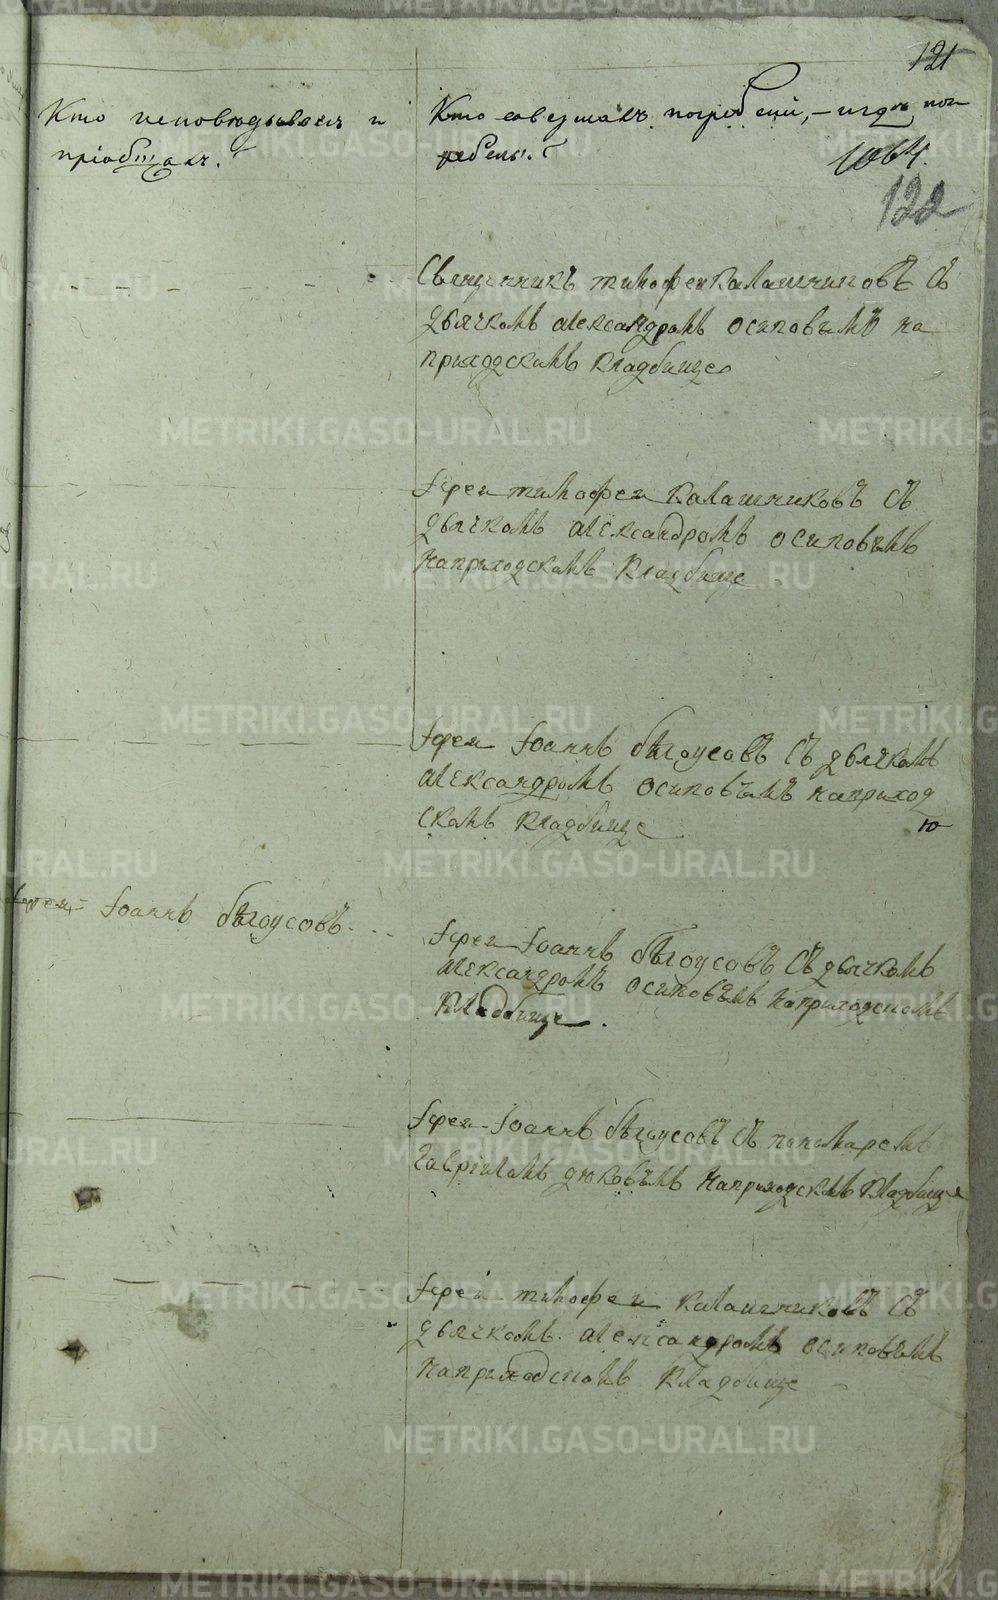 121
Кто исповѣдывалъ и
пріобщалъ.
Кто совершалъ погребенiе, – и гдѣ пог
ребены.
1064.
122
Священникъ тимофеи калашниковъ съ
дьячкомъ александромъ осиповымъ на
приходскомъ кладбище
Іереи тимофеи калашниковъ съ
дьячкомъ александромъ осиповымъ
на приходскомъ кладбище
Іереи Іоаннъ бѣлоусовъ съ дьячкомъ
александромъ осиповымъ на приход
скомъ кладбище
ю
Іереи Іоаннъ бѣлоусовъ
Іереи Іоаннъ бѣлоусовъ съ дьячкомъ
александромъ осиповымъ на приходскомъ
кладбище.
Іереи Іоаннъ бѣлоусовъ съ пономаремъ
гавріиломъ дюковымъ на приходскомъ кладбище
Іереи тимофеи калашниковъ съ
дьячкомъ александромъ осиповымъ
на приходскомъ кладбище
METRIKI.GASO-URAL.RU